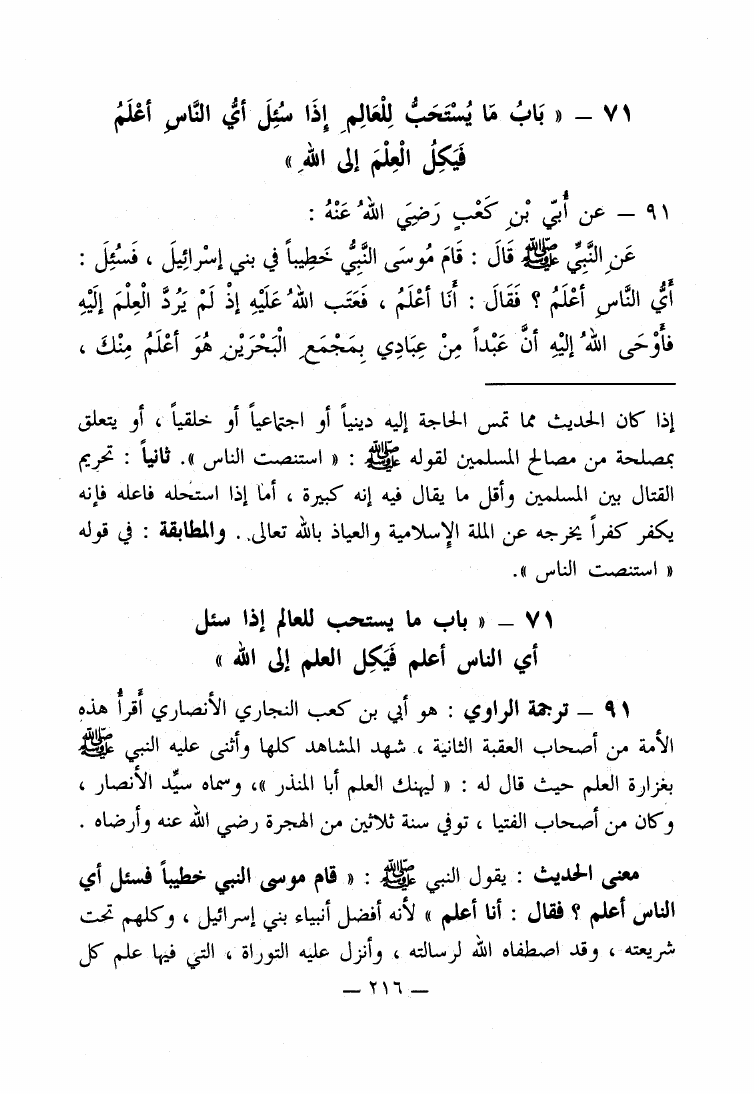 ٧١ – « بَابُ مَا يُسْتَحَبُّ لِلْعَالِمِ إِذَا سُئِلَ أَيُّ النَّاسِ أَعْلَمُ
فَيَكِلُ الْعِلْمَ إلى اللهِ »
٩١ – عن أُبَيِّ بْنِ كَعْبٍ رَضِيَ اللهُ عَنْهُ :
عَنِ النَّبِيِّ ﷺ قَالَ : قَامَ مُوسَى النَّبِيُّ خَطِيباً في بني إسْرائِيلَ ، فَسُئِلَ :
أَيُّ النَّاسِ أَعْلَمُ ؟ فَقَالَ : أَنَا أَعْلَمُ ، فَعَتَب اللهُ عَلَيْهِ إذْ لَمْ يَرُدَّ الْعِلْمَ إِلَيْهِ
فأَوْحَى اللهُ إِلَيْهِ أنَّ عَبْداً مِنْ عِبَادِي بِمَجْمَعِ الْبَحْرَيْنِ هُوَ أَعْلَمُ مِنْكَ ،
إذا كان الحديث مما تمس الحاجة إليه دينياً أو اجتماعياً أو خلقياً ، أو يتعلق
بمصلحة من مصالح المسلمين لقوله ﷺ : « استنصت الناس ». ثانياً : تحريم
القتال بين المسلمين وأقل ما يقال فيه إنه كبيرة ، أما إذا استحله فاعله فإنه
يكفر كفراً يخرجه عن الملة الإسلامية والعياذ بالله تعالى . والمطابقة : في قوله
« استنصت الناس ».
٧١ – « باب ما يستحب للعالم إذا سئل
أي الناس أعلم فَيَكِل العلم إلى الله »
٩١ – ترجمة الراوي : هو أبي بن كعب النجاري الأنصاري أَقرأُ هذه
الأمة من أصحاب العقبة الثانية ، شهد المشاهد كلها وأثنى عليه النبي ﷺ
بغزارة العلم حيث قال له : « ليهنك العلم أبا المنذر »، وسماه سيِّد الأنصار ،
وكان من أصحاب الفتيا ، توفي سنة ثلاثين من الهجرة رضي الله عنه وأرضاه .
معنى الحديث : يقول النبي ﷺ : « قام موسى النبي خطيباً فسئل أي
الناس أعلم ؟ فقال : أنا أعلم » لأنه أفضل أنبياء بني إسرائيل ، وكلهم تحت
شريعته ، وقد اصطفاه الله لرسالته ، وأنزل عليه التوراة ، التي فيها علم كل
– ٢١٦ –